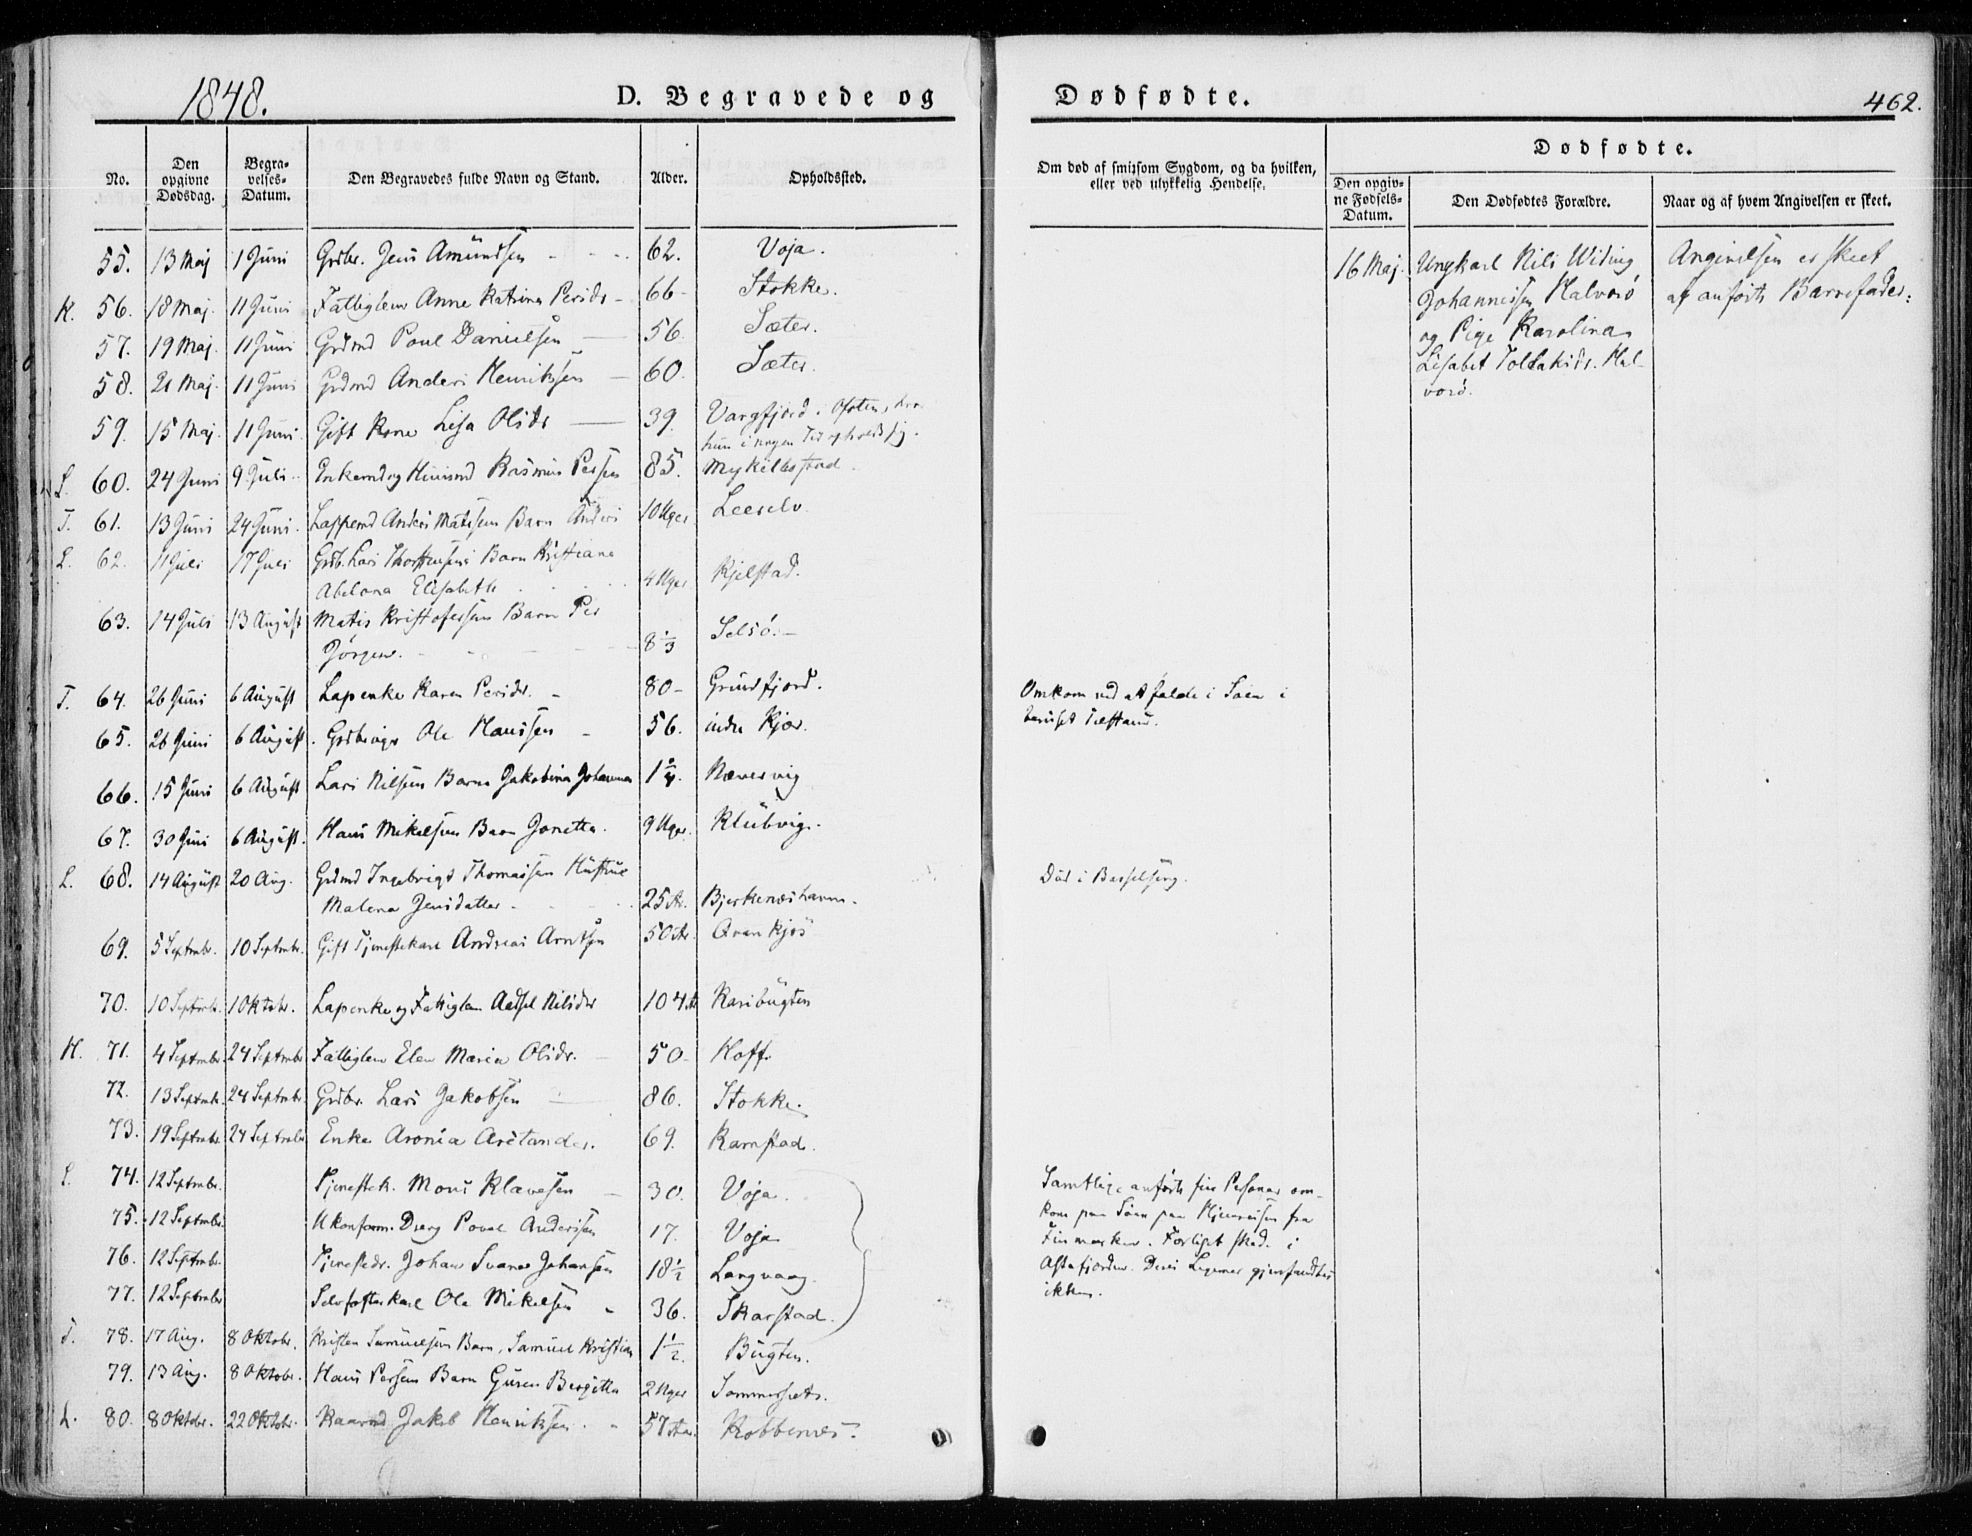 1848.
D. Begravede og Dødfødte.
462.
No.
Den opgivne Dødsdag.
Begravelses-Datum.
Den Begravedes fulde Navn og Stand.
Alder.
Opholdssted.
Om død af smitsom Sygdom, og da hvilken, eller ved ulykkelig Hendelse.
Dødfødte.
Den opgivne Fødsels-Datum.
Den Dødfødtes Forældre.
Naar og af hvem Angivelsen er skeet.
55. 13 Maj 1 Juni Grdbr. Jens Amundsen 62. Voja.
K. 56. 18 Maj. 11 Juni Fattiglem Anne Katrina Persdr 66 Stokke.
57. 19 Maj. 11 Juni Grdmd Poul Danielsen 56. Sæter.
58. 21 Maj. 11 Juni Grdmd Anders Henriksen 60. Sæter.
59. 15 Maj. 11 Juni. Gift Kone Lisa Olsdr 39. Vargfjord. Ofoten, hvor
hun i nogen Tid opholdt sig.
L. 60. 24 Juni 9 Juli Enkemd og Rasmus Persen 85. Mykilbostad.
T. 61. 13 Juni 24 Juni. Lappemd Anders Matisens Barn Anders 10 Uger Leerelv
L. 62. 1 Juli 17 Juli Grdb. Lars Thostensens Barn Kristiane
Abelona Elisabeth 4 Uger Kjelstad.
63. 14 Juli 13 August Matis Kristofersens Barn Per
Jørgen. 8 1/3 Selsö.
T. 64. 26 Juni 6 August Lapenke Karen Persdr. 80 Grundfjord.
65. 26 Juni 6 August. Ole Hansen 56. indre Kjær.
66. 15 Juni 6 August Lars Nilsens Barn Jakobina Johanna 1 3/4. Nævervig
67. 30 Juni 6 August. Hans Mikelsens Barn Jonetta. 9 Uger. Klubvig.
L. 68. 14 August 20 Aug. Grdmd Ingebrigt Thomassen Hustrue
Malena Jensdatter 25 Ar. Bjerkenæshavn.
69. 5 Septembr. 10 Septembr. Gift Tjenestekarl Andreas Arntsen 50 Ar. Qvankjös
70. 10 Septembr. 1 Oktobr. Lapenke og Fattiglem Nilsdr 104 Ar Karibugten
H. 71. 4 Septembr. 24 Septembr Fattiglem Elen Maria Olsdr. 50 Hoff
72. 13 Septembr. 24 Septembr. Grdbr. Lars Jakobsen 86. Stokke.
73. 19 Septembr. 24 Septembr Enke Aronia Arctander. 69. Karnstad.
L. 74. 12 Septembr. Tjenestek. Mons Klævesen 30. Voja.
75. 12 Septembr. Ukonform. Dreng Povel Andersen 17. Voja
76. 12 Septembr. Tjenestedr. Johan Svane Johansen 18 1/2 Langvaag.
77. 12 Septembr Selvfosterkarl Ole Mikelsen 36. Skarstad.
T. 78. 17 Aug. 8 Oktobr. Kristen Samuelsens Barn, Samuel Kristian 1 1/2. Bugten.
79. 13 Aug. 8 Oktobr. Hans Persens Barn Guren Bergitta 2 Uger Sommersæt.
L. 80. 8 Oktobr. 22 Oktobr. Kaarmd Jakob Henriksen. 57 Ar. Robbenæs.
Omkom ved at falde i Söen i
beruset Tilstand.
Död i Barselseng.
Samtlige anförte fire Personer om-
kom paa Söen paa Hjemreisen fra
Finmarken. Forliset skede i
Astafjorden. Deres Legemer gjenfandtes
ikke.
16 Maj. Ungkarl Nils Wiking
Johannessen Halvorö
og Pige Karolina
Lisabet Tollaksdr. Hal-
vorö.
Angivelsen er skeet
af anförte Barnefader.